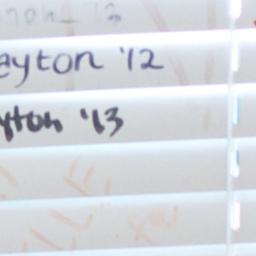 eyton '12
yton '13